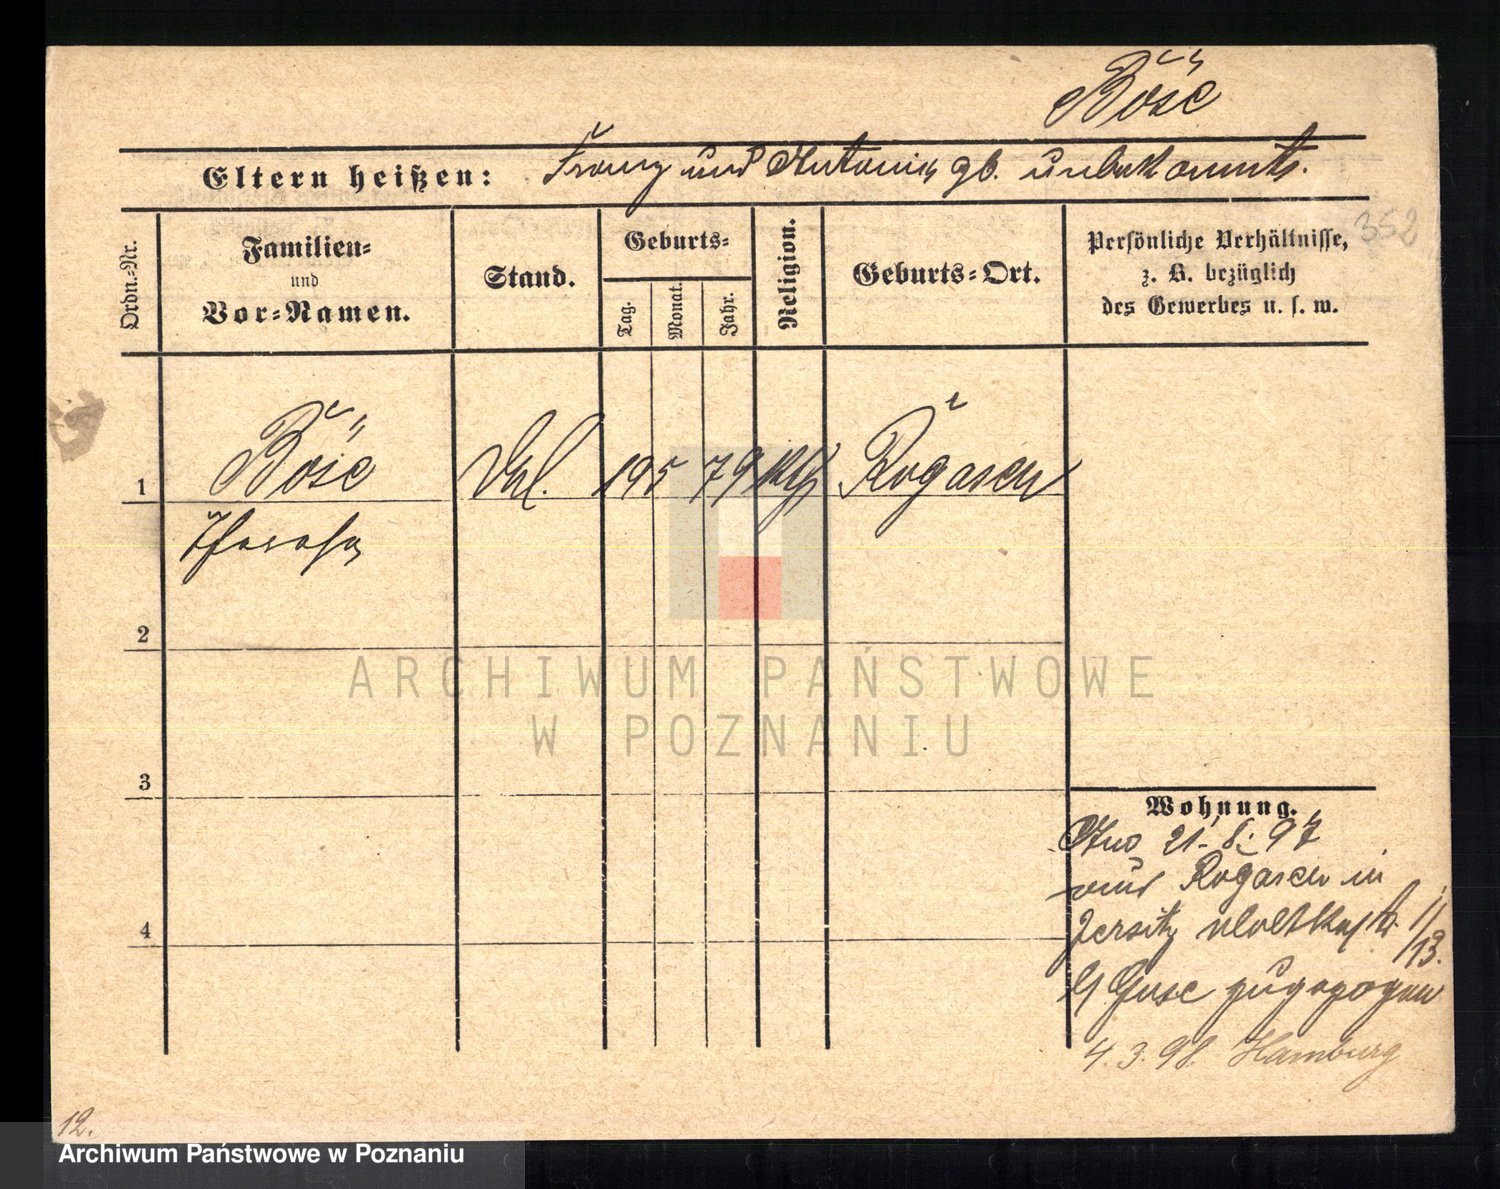 Böse
Eltern heißen: Franz und Antonie gb. unbekannt.
352
Ordn.-Nr.
Familien-
und
Vor-Namen.
Stand.
Geburts-
Tag.
Monat.
Jahr.
Religion.
Geburts-Ort.
Persönliche Verhältnisse,
z. B. bezüglich
des Gewerbes u. s. w.
1 Böse 19 5 79 Rogasen
Theresa
2
3
4
ARCHIWUM PAŃSTWOWE
W POZNANIU
Wohnung.
21. 8. 97
aus Rogasen in
Jersitz 11/13.
zugezogen
4. 3. 98. Hamburg
12.
Archiwum Państwowe w Poznaniu